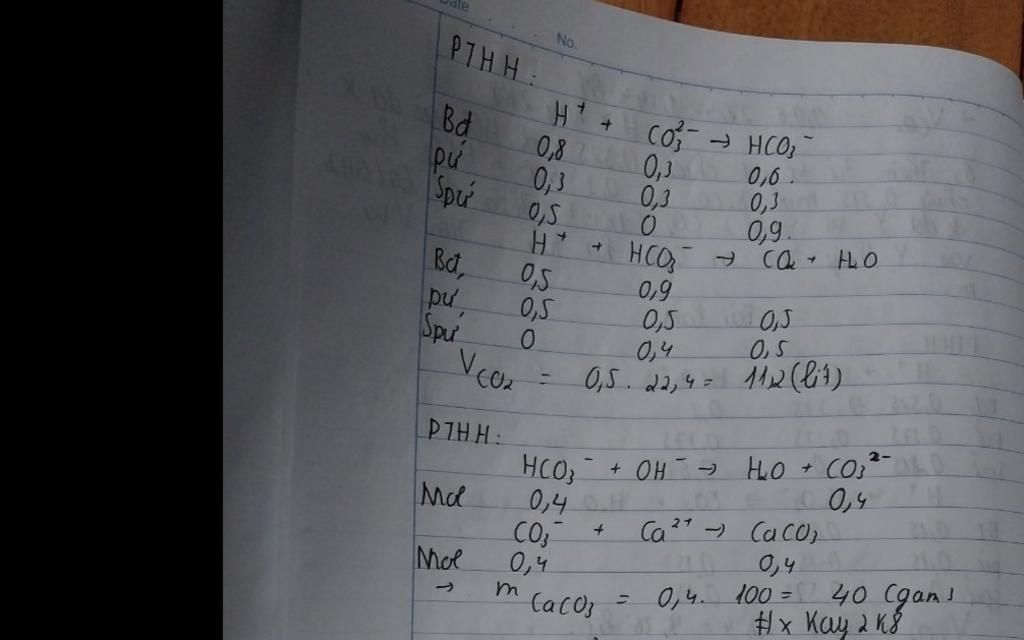 Date
No.
PTHH:
H⁺ + CO₃²⁻ → HCO₃⁻
Bđ 0,8 0,3 0,6.
pứ 0,3 0,3 0,3
Spứ 0,5 0 0,9.
H⁺ + HCO₃⁻ → CO₂ + H₂O
Bđ, 0,5 0,9
pứ, 0,5 0,5 0,5
Spứ 0 0,4 0,5
V CO₂ = 0,5. 22,4 = 11,2 (lít)
PTHH:
HCO₃⁻ + OH⁻ → H₂O + CO₃²⁻
Mol 0,4 0,4
CO₃⁻ + Ca²⁺ → CaCO₃
Mol 0,4 0,4
→ m CaCO₃ = 0,4. 100 = 40 (gam)
#x Kay 2k8